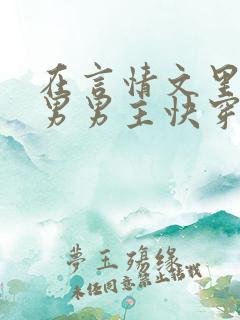 在言情文里
男男主快穿
夢玉殤緣
未经同意禁止转载